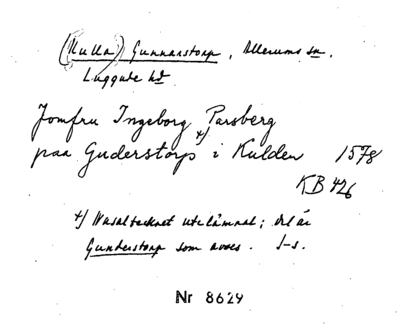 (Kulla) Gunnarstorp, Allerums sn.
Luggude hd
Jomfru Ingeborg Parsberg
paa Guderstorp +) i Kulden 1578
KB 426
+) Nasaltecknet utelämnat; det är
Gunderstorp som avses. J-s.
Nr 8629